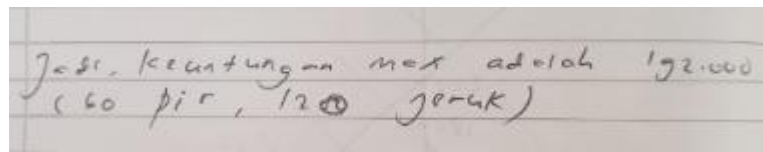 Jadi, keuntungan max adalah 192.000
(60 pir, 120 jeruk)